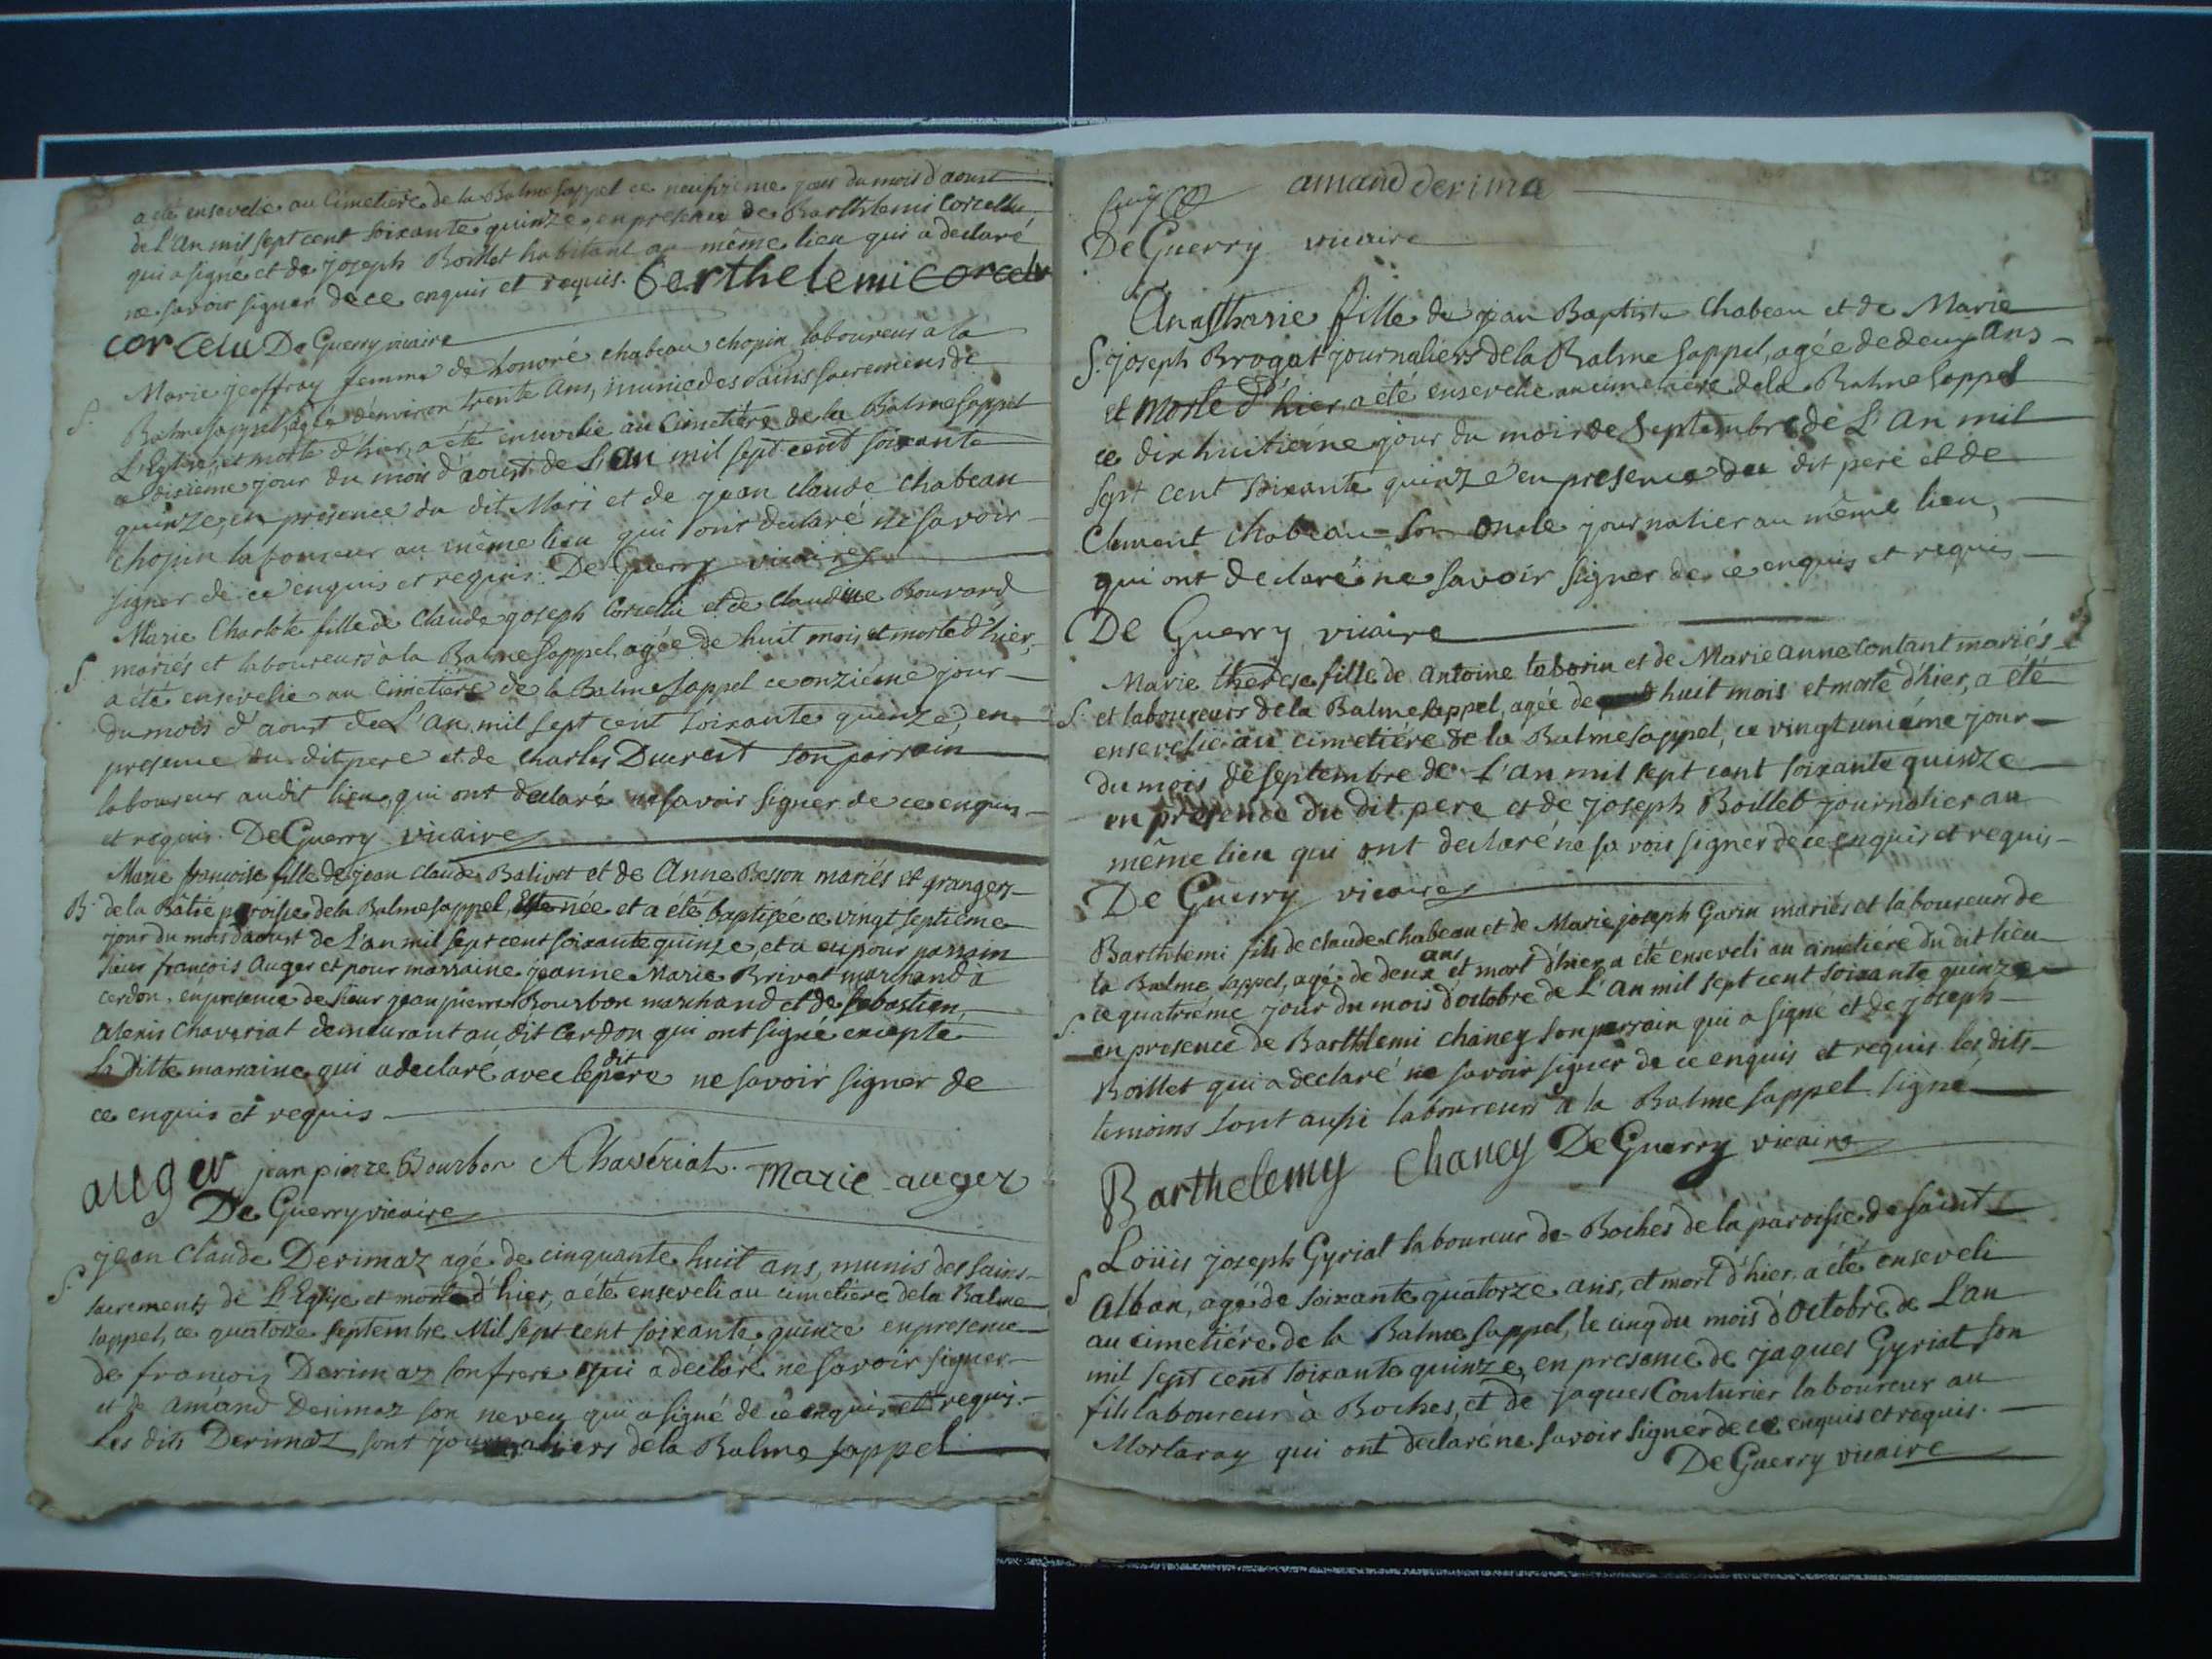 a été ensevelie au Cimetiere de la Balme sappel ce neufvieme jour du mois d'aoust
de L'an mil sept cent soixante quinze en presence de Barthlemi Corcellu
qui a signé et de joseph Boillet habitant au même lieu qui a declaré
ne savoir signer de ce enquis et requis. berthelemi corcelu
corcelu De Guerry vicaire
S. Marie jeoffray femme de honoré chabeau chopin laboureur a la
Balme sappel, agée d'environ trente ans, munie des saints sacremens de
L'Eglise, et morte d'hier, a été ensevelie au Cimetiére de la Balme sappel
ce dixieme jour du mois d'aoust de L'an mil sept cent soixante
quinze, en presence du dit Mari et de jean claude chabeau
chopin laboureur au même lieu qui ont declaré ne savoir
signer de ce enquis et requis. De Guerry vicaire
Marie Charlote fille de Claude joseph Corcellu et de Claudine Bouvard
S mariés et laboureurs à la Balme sappel, agée de huit mois et morte d'hier,
a été ensevelie au Cimetiére de la Balme sappel ce onziéme jour
du mois d'aoust de L'an mil sept cent soixante quinze, en
presence du dit pere et de Charles Ducrest son parrain
laboureur audit lieu, qui ont declaré ne savoir signer de ce enquis
et requis. De Guerry vicaire
Marie françoise fille de jean claude Balivet et de Anne Besson mariés et grangers
B. de la Bâtie paroisse de la Balme sappel, Est née et a été baptisée ce vingt septieme
jour du mois d'aoust de L'an mil sept cent soixante quinze, et a eu pour parrain
sieur françois Auger et pour marraine jeanne Marie Brivet marchand à
cerdon, en presence de sieur jean pierre Bourbon marchand et de sebastien
alexis Chaveriat demeurant au dit Cerdon qui ont signé excepté
la ditte marraine qui a declaré avec le dit père ne savoir signer de
ce enquis et requis
auger jean pierre Bourbon AChavériat. Marie auger
De Guerry vicaire
jean Claude Derimaz agé de cinquante huit ans, munis des saints
S. sacrements de L'Eglise et mort d'hier, a été enseveli au cimetiere de la Balme
sappel, ce quatorze septembre Mil sept cent soixante quinze en presence
de françois Derimaz son frere qui a declaré ne savoir signer
et de amand Derimaz son neveu qui a signé de ce enquis et requis.
Les dits Derimaz sont journaliers de la Balme sappel
amand derima
De Guerry vicaire
Anasthasie fille de jean Baptiste Chabeau et de Marie
S. joseph Brogat journaliers de la Balme sappel, agée de deux ans
et morte d'hier a été ensevelie au cimetiére de la Balme sappel
ce dix huitiéme jour du mois de Septembre de L'an mil
sept cent soixante quinze en presence du dit pere et de
Clement Chabeau son oncle journalier au même lieu,
qui ont declaré ne savoir signer de ce enquis et requis
De Guerry vicaire
Marie therese fille de Antoine taborin et de Marie anne Contant mariés
S. et laboureurs de la Balme sappel, agée de huit mois et morte d'hier, a été
ensevelie au cimetiére de la Balme sappel, ce vingt uniéme jour
du mois de septembre de L'an mil sept cent soixante quinze
en presence du dit pere et de joseph Boillet journalier au
même lieu qui ont declaré ne savoir signer de ce enquis et requis
De Guerry vicaire
Barthlemi fils de claude Chabeau et de Marie joseph Garin mariés et laboureurs de
la Balme sappel, agé de deux ans et mort d'hier a été enseveli au cimetiére du dit lieu
S. ce quatriéme jour du mois d'octobre de L'an mil sept cent soixante quinze
en presence de Barthlemi Chaney son parrain qui a signé et de joseph
Boillet qui a declaré ne savoir signer de ce enquis et requis les dits
temoins sont aussi laboureurs a la Balme sappel signé
Barthelemy Chaney De Guerry vicaire
Loüis joseph Gyriat laboureur de Boches de la paroisse de saint
S Alban, agé de soixante quatorze ans, et mort d'hier, a été enseveli
au cimetiére de la Balme sappel, le cinq du mois d'octobre de L'an
mil sept cent soixante quinze, en presence de jaques Gyriat son
fils laboureur à Boches, et de jaques Couturier laboureur au
Mortaray qui ont declaré ne savoir signer de ce enquis et requis.
De Guerry vicaire